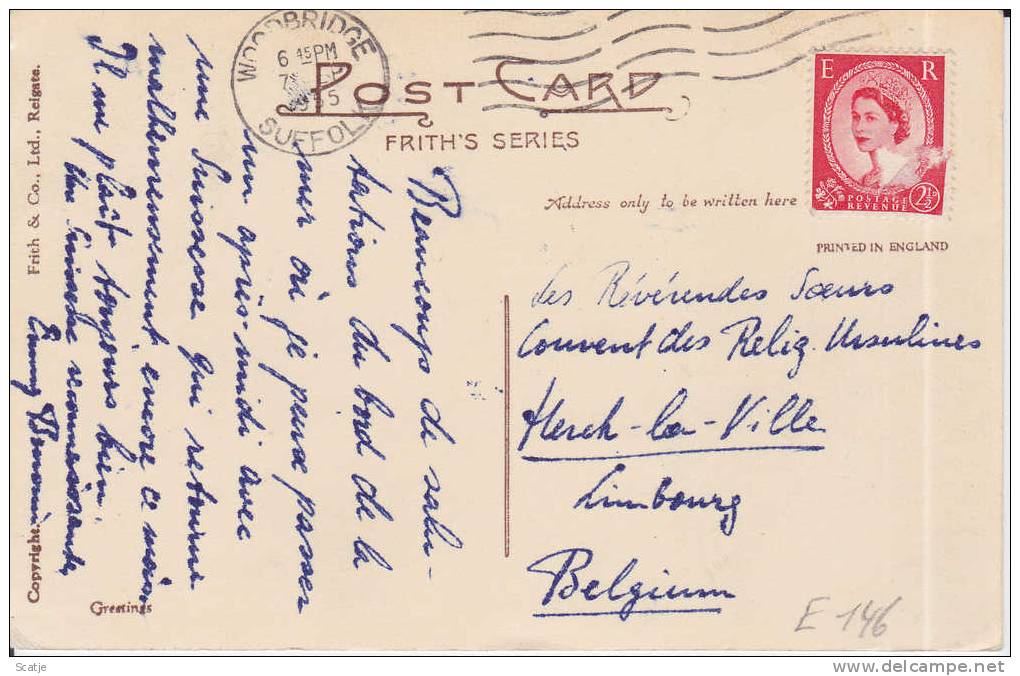 WOODBRIDGE
6 45PM
SUFFOLK
POST CARD
FRITH'S SERIES
E R
POSTAGE
REVENUE
2½D
Address only to be written here
PRINTED IN ENGLAND
Beaucoup de salu-
tations du bord de la
mer où je peux passer
un après-midi avec
une Suissesse qui retourne
malheureusement encore ce mois
Il me plaît toujours bien.
Une reconnaissante,
Emmy
Les Révérendes Sœurs
Couvent des Relig. Ursulines
Herck-la-Ville
Limbourg
Belgium
Greetings
Copyright. Frith & Co., Ltd., Reigate.
E 146
Scatje
delcampe.net